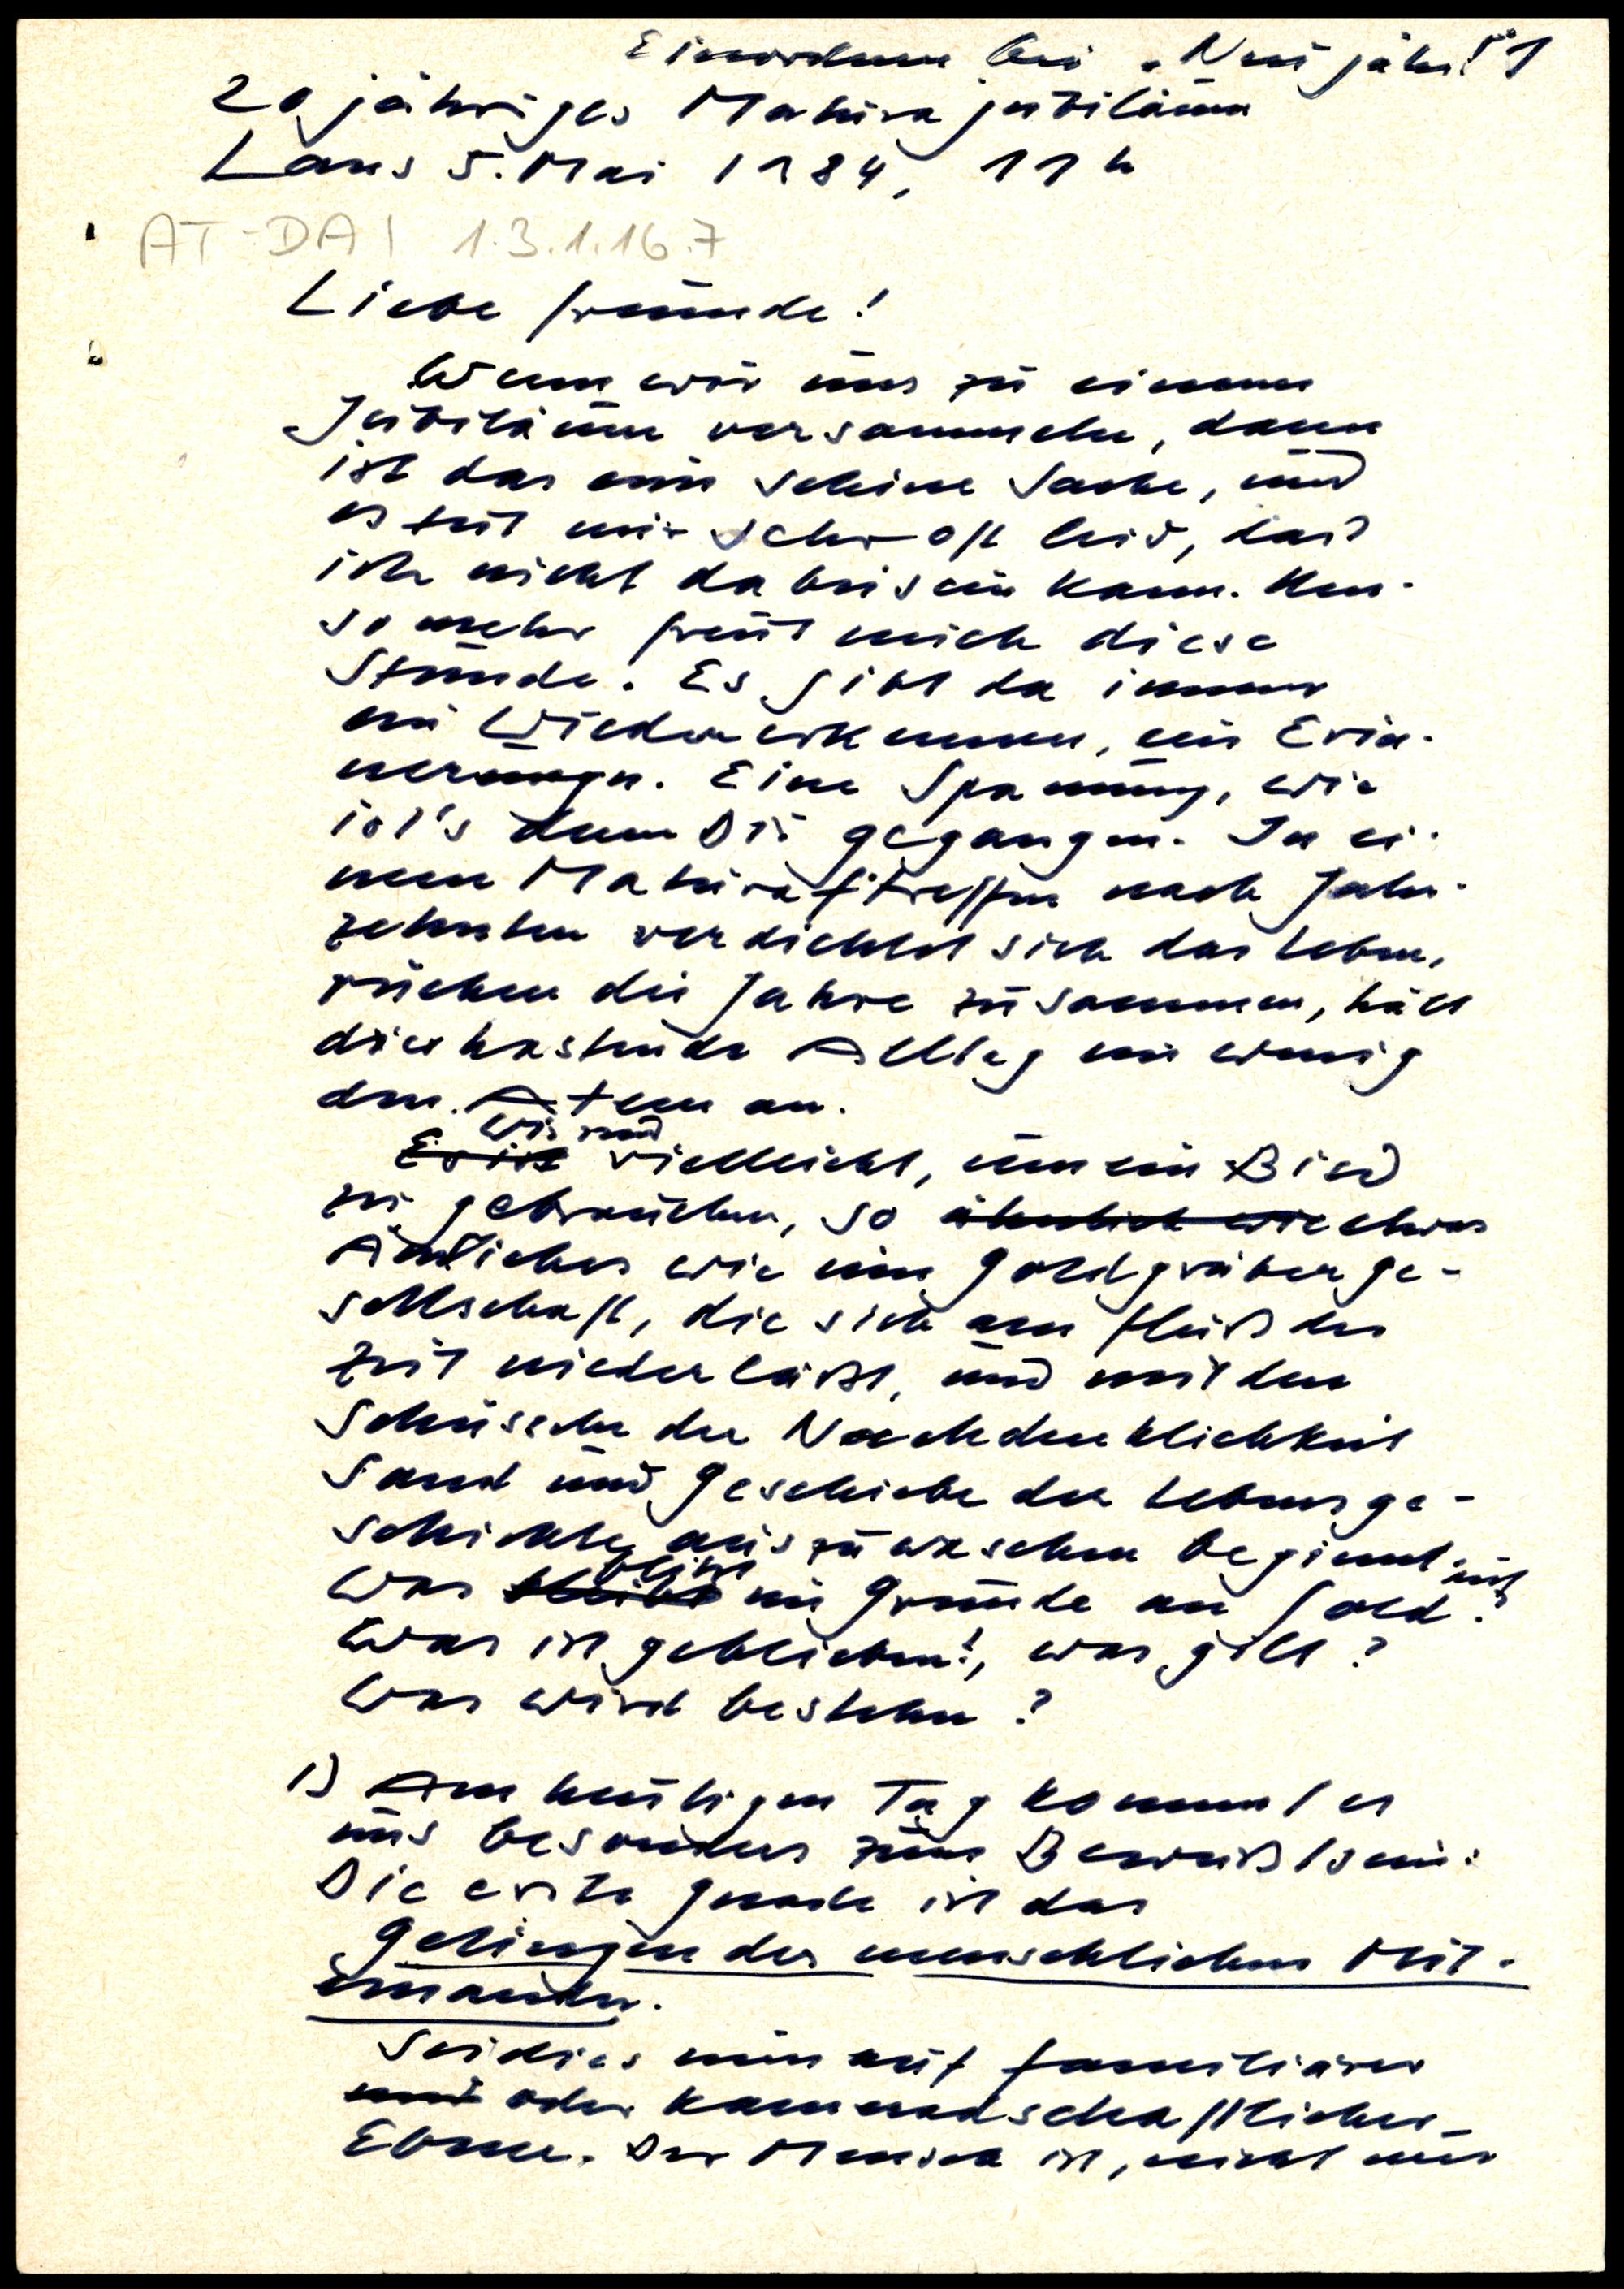 Einordnen bei "Neujahr" 1
20 jähriges Maturajubiläum
Lans 5. Mai 1984, 11 h
AT-DAI 1.3.1.16.7
Liebe Freunde!
Wenn wir uns zu einem
Jubiläum versammeln, dann
ist das eine schöne Sache, und
es tut mir sehr oft leid, daß
ich nicht dabeisein kann. Um-
so mehr freut mich diese
Stunde. Es gibt da immer
ein Wiedererkennen, ein Erin-
nern. Eine Spannung, wie
ist's denn Dir gegangen. In ei-
nem Maturatreffen nach Jahr-
zehnten verdichtet sich das Leben,
rücken die Jahre zusammen, hält
der hastende Alltag ein wenig
den Atem an.
wir sind
Es ist vielleicht, um ein Bild
zu gebrauchen, so ähnlich wie etwas
Ähnliches wie eine Goldgräberge-
sellschaft, die sich am Fluß der
Zeit niederläßt, und mit den
Schüsseln der Nachdenklichkeit
Sand und Geschiebe der Lebensge-
schichte auszuwaschen beginnt.
Was bleibt im Grunde an Gold?
Was ist geblieben?, was gilt?
Was wird bestehen?
1) Am heutigen Tag kommt es
uns besonders zum Bewußtsein:
Die erste Gnade ist das
Gelingen des menschlichen Mit-
einander.
Sei dies nun auf familiärer
und oder kameradschaftlicher
Ebene. Der Mensch ist, nicht nur